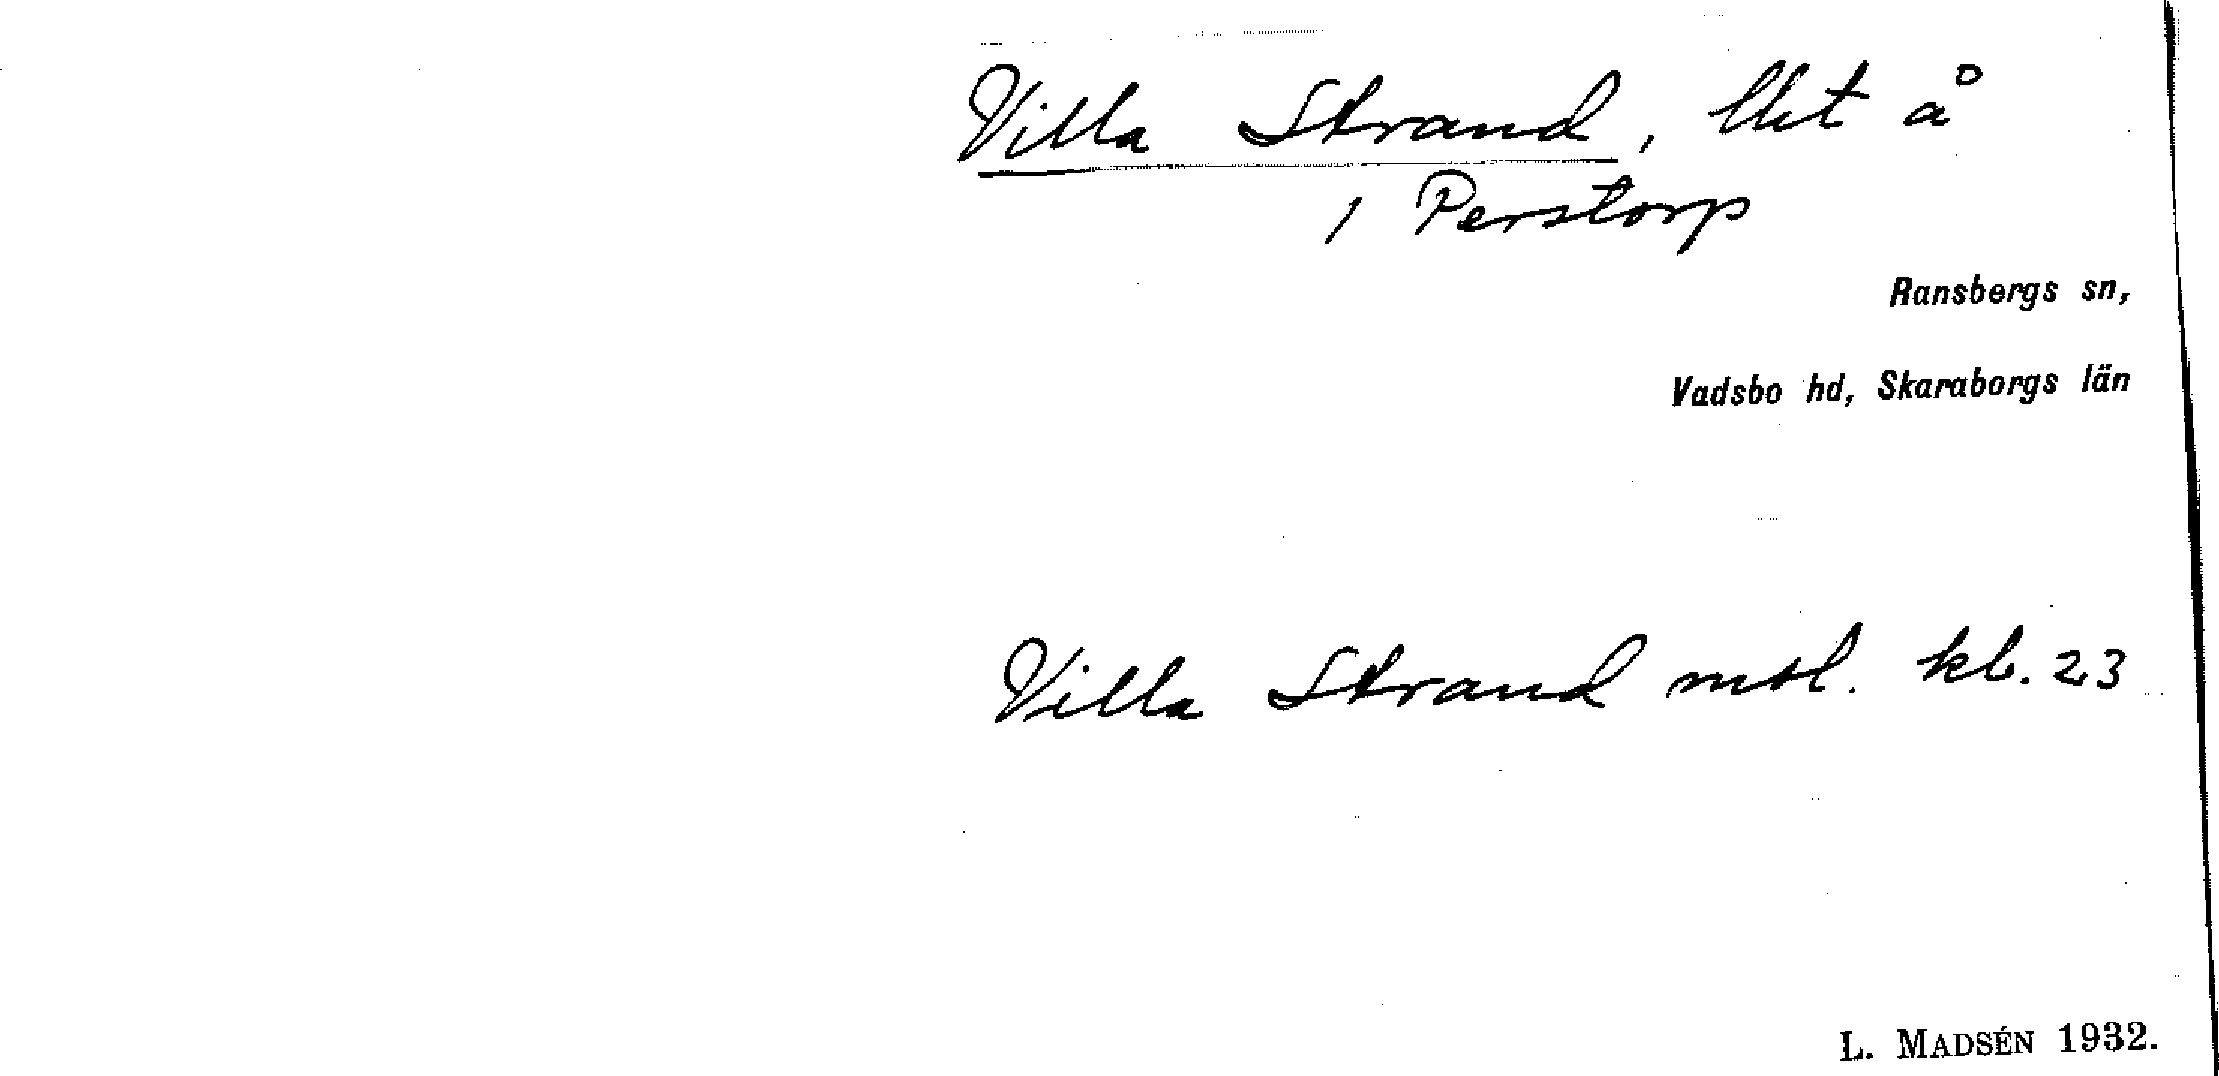 Villa Strand, lht å
1 Perstorp
Ransbergs sn,
Vadsbo hd, Skaraborgs län
Villa Strand mtl. kb. 23
L. MADSÉN 1932.